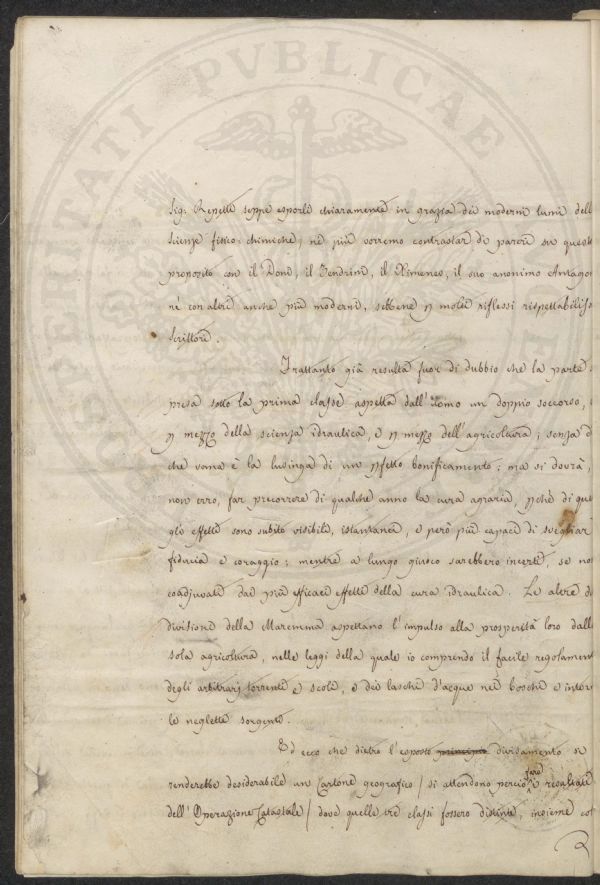 Sig. Repetti seppe esporli chiaramente in grazia dei moderni lumi dell
Scienze fisico chimiche; nè più vorremo contrastar di pareri su questo
proposito con il Dond, il Zendrini, il Ximenes, il suo anonimo Antagon
nè con altri anche più moderni, sebbene p molti riflessi rispettabiliss
Scrittori.
Trattanto già resulta fuor di dubbio che la parte
presa sotto la prima classe aspetta dall'uomo un doppio soccorso,
p mezzo della scienza idraulica, e p mezzo dell'agricoltura; senza d
che vana è la lusinga di un pfetto bonificamento: ma si dovrà,
non erro, far precorrere di qualche anno la cura agraria, pchè di que
gli effetti sono subito visibili, istantanei, e però più capaci di svegliar
fiducia e coraggio; mentre a lungo giuoco sarebbero incerti, se non
coadjuvati dai più efficaci effetti della cura idraulica. Le altre d
divisioni della Maremma aspettano l'impulso alla prosperità loro dalla
sola agricoltura, nelle leggi della quale io comprendo il facile regolament
degli arbitrarj torrenti e scoli, e dei laschi d'acque nei boschi e inter
le neglette sorgenti.
Ed ecco che dietro l'esposto principio divisamento si
renderebbe desiderabile un Cartone geografico / si attendono perciò forse i resultati
dell'Operazione Catastale / dove quelle tre classi fossero distinte, insieme col
PVBLICAE